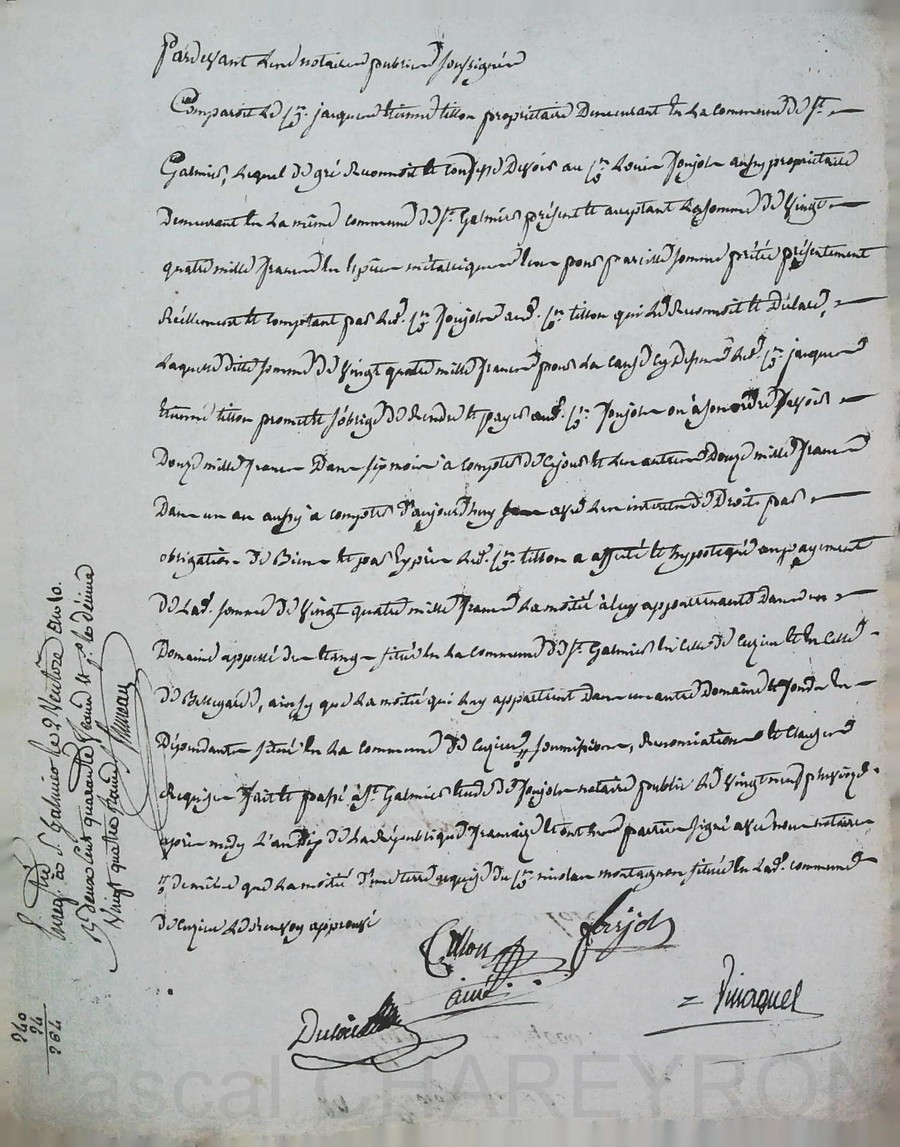 Pardevant les notaires publics soussignés
Comparoit le sr. jacques Etienne tillon propriétaire Demeurant En La commune de St.
Galmier, Lequel de gré Reconnoit et confesse Devoir au sr. Louis Joujon aussy propriétaire
Demeurant En La même commune de St. Galmier présent et acceptant La somme de Vingt
quatre mille francs En Espèces métalliques pour pareille somme prêtée présentement
Réellement et comptant par led. sr. Joujon aud. sr. tillon qui Le Reconnoit et Déclare,
Laquelle ditte somme de Vingt quatre mille francs pour La cause cy Dessus led. sr. jacques
Etienne tillon promet et s'oblige de Rendre et payer aud. sr. Joujon ou à son ordre savoir
Douze mille francs Dans six mois à compter de ce jour et Les autres Douze mille francs
Dans un an aussy à compter d'aujourdhuy avec Les interets de Droit par
obligation de Biens et par Exprès led. sr. tillon a affecté et hypotequé au payement
de Lad. somme de Vingt quatre mille francs La moitié à luy appartenant Dans un
Domaine appellé de L'etang situé En La commune de St. Galmier En Celle de Cuzieu et En Celle
de Bellegarde, ainsy que La moitié qui Luy appartient Dans un autre Domaine et fonds En
Dépendants situé En La commune de Cuzieu, soumissions, Renonciations et Clauses
Requises fait et passé à St. Galmier Etude de Joujon notaire public Le Vingt neuf pluviose
après midy L'an Dix de La République française Et ont Les parties signé avec nous notaires
de même que La moitié d'une terre acquise du sr. nicolas montagnon située En Lad. commune
de Cuzieu Le Renvoy approuvé
Tillon
ainé
Joujon
Pinaquel
Enreg. à St. Galmier le 2 Ventose an 10.
Rç. deux cent quarante francs et pr. le décime
Vingt quatre francs
240
24
264
Pascal CHAREYRON